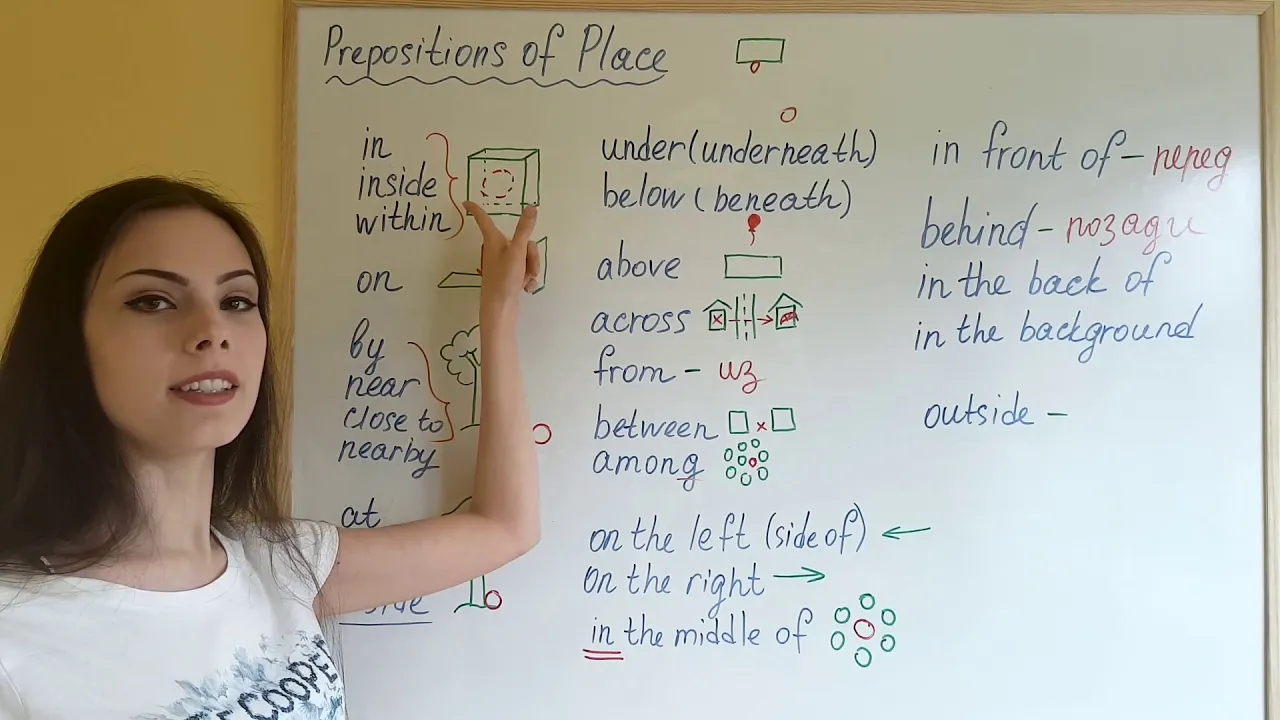 Prepositions of Place
in
inside
within
on
by
near
close to
nearby
at
side
under (underneath)
below (beneath)
above
across
from – из
between
among
on the left (side of)
on the right
in the middle of
in front of – перед
behind – позади
in the back of
in the background
outside –
COOPER